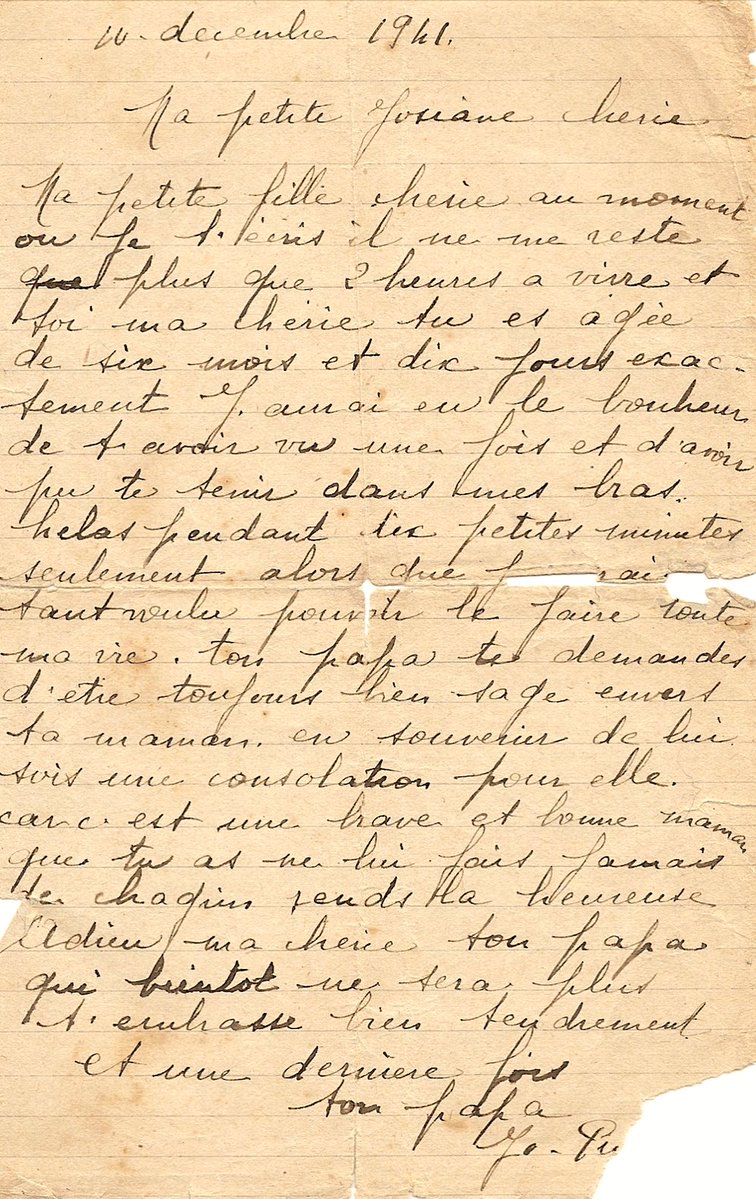 decembre 1941.
Ma petite Josiane cherie
Ma petite fille cherie au moment
ou je t'ecris il ne me reste
que plus que 2 heures a vivre et
toi ma cherie tu es agée
de six mois et dix jours exac-
tement J'aurai eu le bonheur
de t'avoir vu une fois et d'avoir
pu te tenir dans mes bras.
helas pendant dix petites minutes
seulement alors que j rai
tant voulu pouvoir le faire toute
ma vie. ton papa te demandes
d'etre toujours bien sage envers
ta maman. en souvenir de lui
sois une consolation pour elle.
car c'est une brave et bonne maman
que tu as ne lui fais jamais
de chagrin rends la heureuse
Adieu ma cherie ton papa
qui bientot ne sera plus
t'embrasse bien tendrement
et une derniere fois
ton papa
Jo. Pu